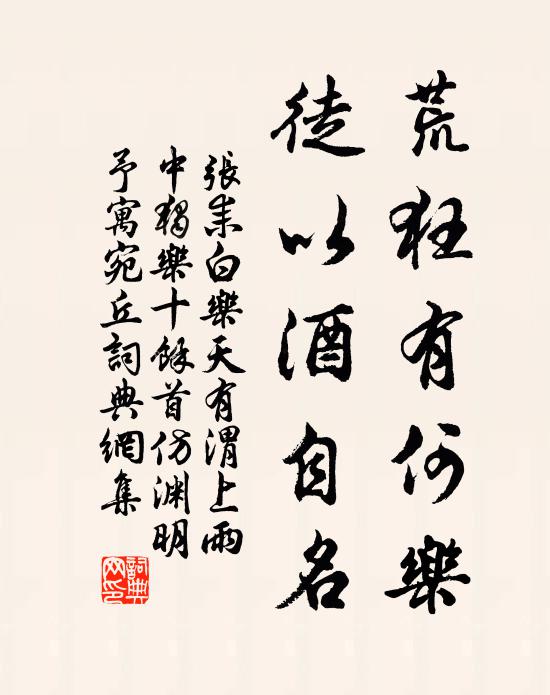 荒狂有何樂
徒以酒自名
張耒白樂天有渭上雨
中獨樂十餘首仿渊明
予寓宛丘詞典網集
詞典
网印